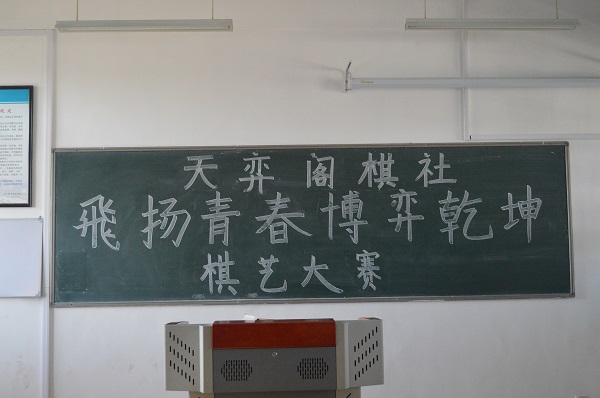 天弈阁棋社
飛扬青春博弈乾坤
棋艺大赛